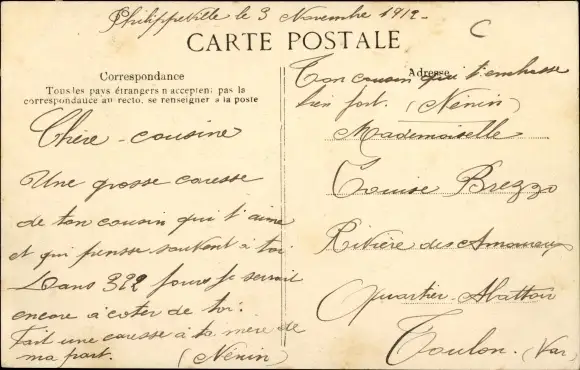 Philippeville le 3 Novembre 1912-
C
CARTE POSTALE
Correspondance
Tous les pays étrangers n'acceptent pas la
correspondance au recto, se renseigner à la poste
Chère - cousine
Une grosse caresse
de ton cousin qui t'aime
et qui pensse souvent à toi
Dans 322 jours je serrait
encore à coter de toi.
Fait une caresse à ta mère de
ma part. (Nénin)
Adresse
Ton cousin qui t'embrasse
bien fort. (Nénin)
Mademoiselle
Louise Brezzo
Rivière des Amoureux
Quartier-Abattoir
Toulon. (Var)